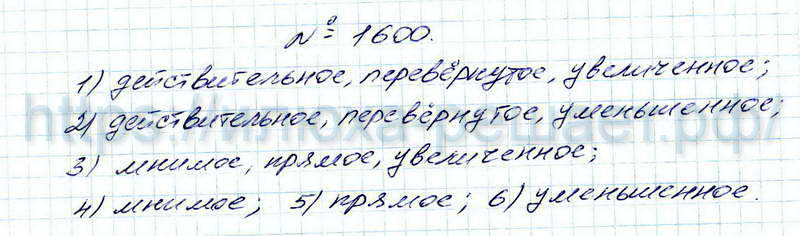 № 1600.
1) действительное, перевёрнутое, увеличенное;
2) действительное, перевёрнутое, уменьшенное;
3) мнимое, прямое, увеличенное;
4) мнимое; 5) прямое; 6) уменьшенное.